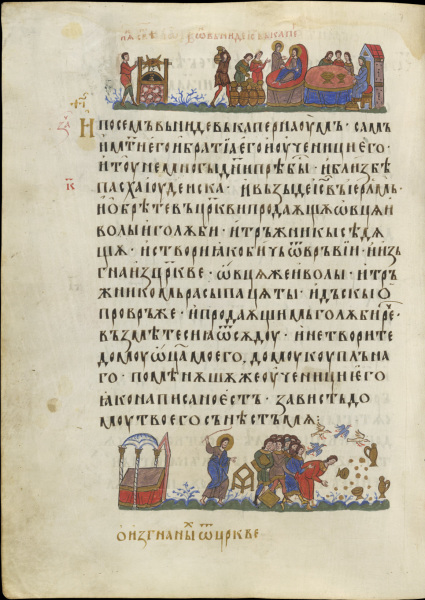 И посемъ вьниде вь капернаоумъ · самъ
и мт҃и его и братїа его и оученици его ·
и тоу не многы дн҃и прѣбы · и близь бѣ
пасха їоудеиска · и вьзыде і҃с вь іерл҃мь ·
и обрѣте вь цр҃кви продажщжѧ овцѧ и
волы и голѫби · и трьжникы сѣдѧ
щѧ · и створи ꙗко бичь ѿ врьвїи · и из
гна из цр҃кве · овцѧ же и волы · и тръ
жникомь расыпа цѧты · и дъскы о
провръже · и продажщимь голѫби рече ·
възмѣте сиа ѿсѫдоу · и не творите
домоу ѿца моего, домоу коупльна
го · помѣнѫшѫ же оученици его
ꙗко написано есть · зависть до
моу твоего сънѣстъ мѧ :
о изгнаны ѿ цркве